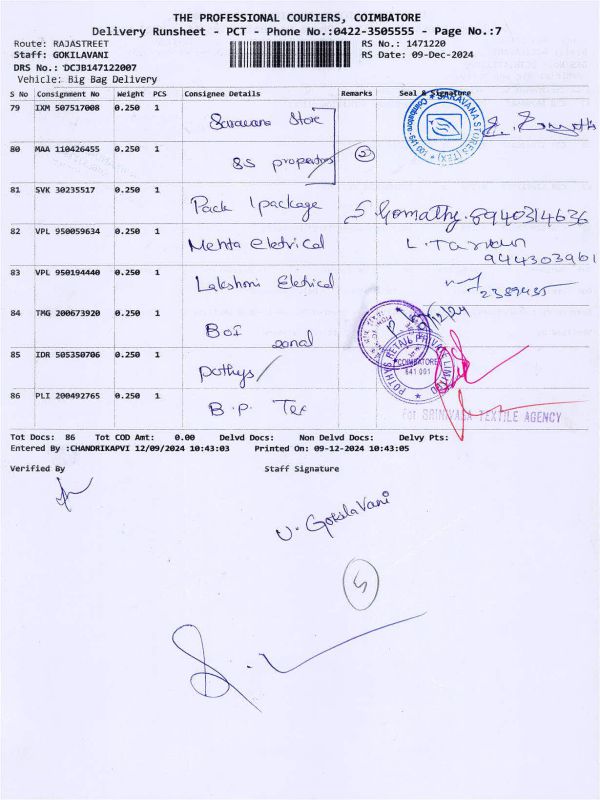 THE PROFESSIONAL COURIERS, COIMBATORE
Delivery Runsheet - PCT - Phone No.:0422-3505555 - Page No.:7
Route: RAJASTREET
Staff: GOKILAVANI
DRS No.: DCJB147122007
Vehicle: Big Bag Delivery
RS No.: 1471220
RS Date: 09-Dec-2024
S No Consignment No Weight PCS Consignee Details Remarks Seal & Signature
79 IXM 507517008 0.250 1 Saravana Store
80 MAA 110426455 0.250 1 SS properties 2
81 SVK 30235517 0.250 1 Pack 1package S. Gomathy. 8940314636
82 VPL 950059634 0.250 1 Mehta eletrical L. 944303961
83 VPL 950194440 0.250 1 Lakshmi Eletrical 2389485
84 TMG 200673920 0.250 1 BoI zonal
85 IDR 505350706 0.250 1 Pothys
86 PLI 200492765 0.250 1 B.P. Tex
SARAVANA STORES (TEX)
POTHYS RETAIL PRIVATE LIMITED
COIMBATORE
641 001
For SRINIVASA TEXTILE AGENCY
Tot Docs: 86 Tot COD Amt: 0.00 Delvd Docs: Non Delvd Docs: Delvy Pts:
Entered By :CHANDRIKAPVI 12/09/2024 10:43:03 Printed On: 09-12-2024 10:43:05
Verified By Staff Signature
U. GokilaVani
5